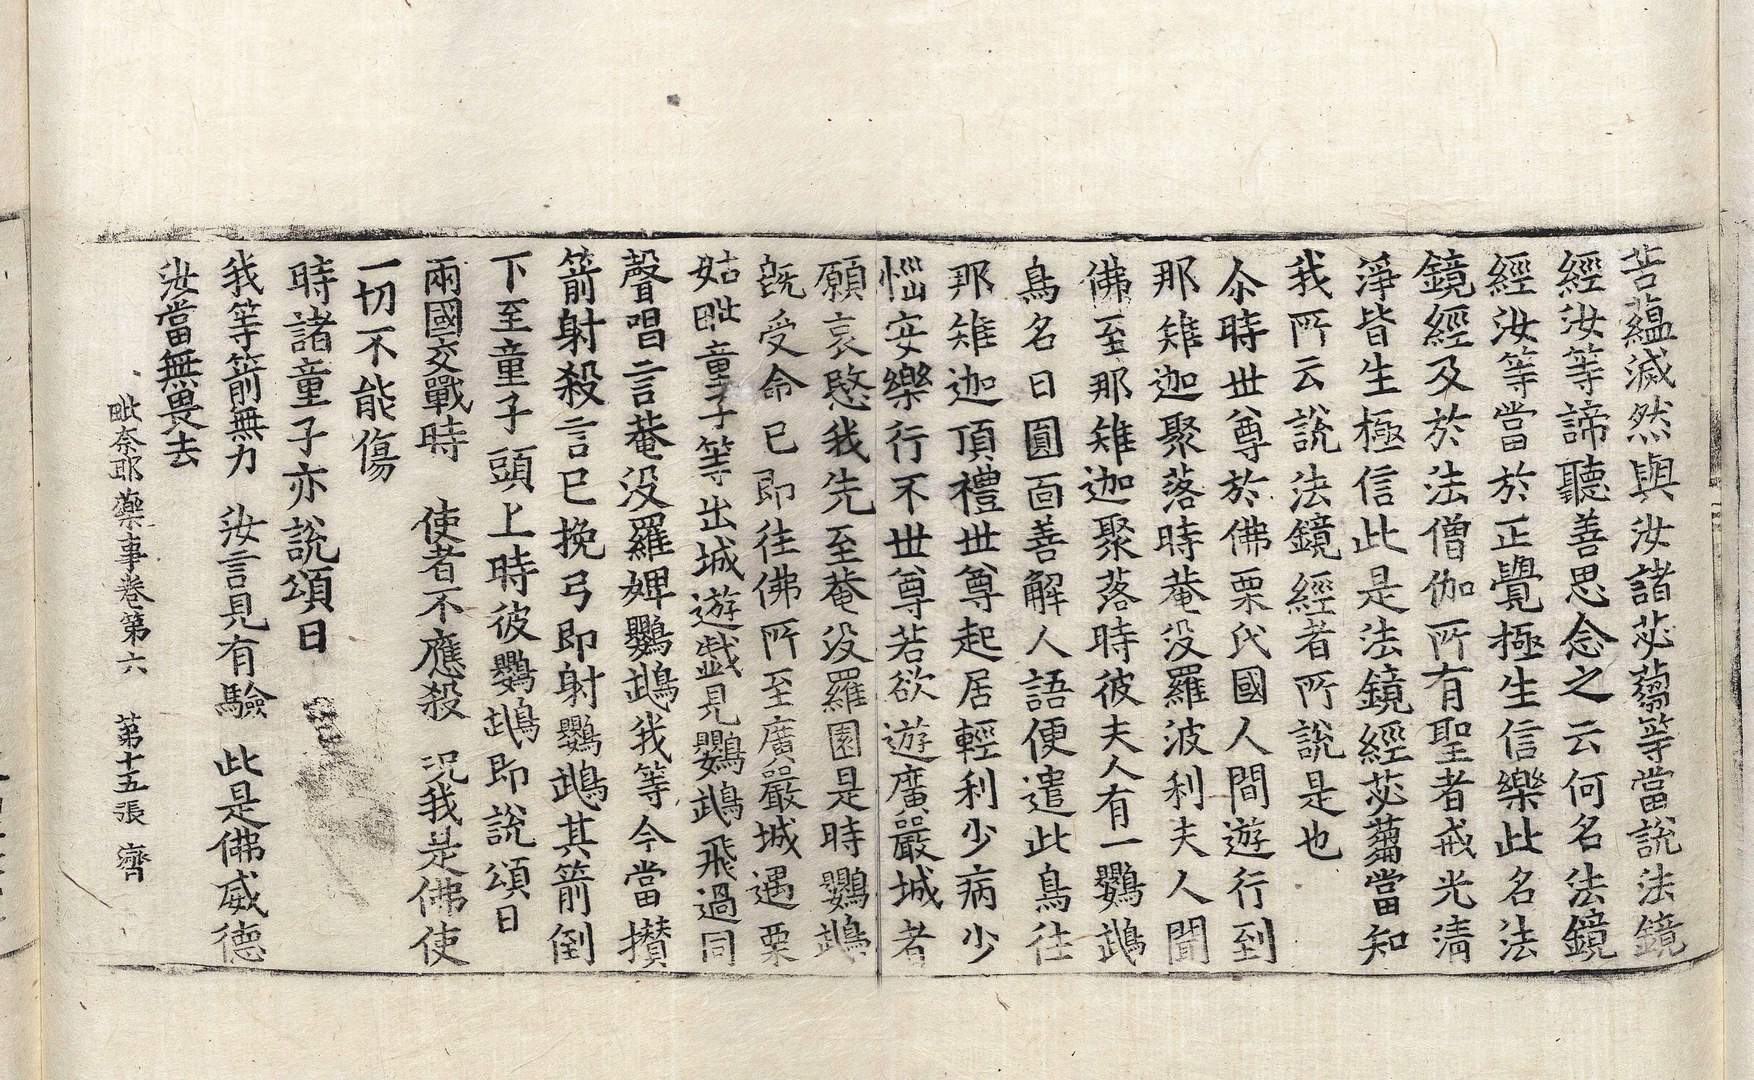 苦蘊滅然與汝諸苾蒭等當說法鏡
經汝等諦聽善思念之云何名法鏡
經汝等當於正覺極生信樂此名法
鏡經及於法僧伽所有聖者戒光清
淨皆生極信此是法鏡經苾蒭當知
我所云說法鏡經者所說是也
尒時世尊於佛栗氏國人間遊行到
那雉迦聚落時菴没羅波利夫人聞
佛至那雉迦聚落時彼夫人有一鸚鵡
鳥名曰圓面善解人語便遣此鳥往
那雉迦頂禮世尊起居輕利少病少
惱安樂行不世尊若欲遊廣嚴城者
願哀愍我先至菴没羅園是時鸚鵡
旣受命已即往佛所至廣嚴城遇栗
姑毗童子等出城遊戲見鸚鵡飛過同
聲唱言菴没羅婢鸚鵡我等今當攅
箭射殺言已挽弓即射鸚鵡其箭倒
下至童子頭上時彼鸚鵡即說頌曰
兩國交戰時　使者不應殺　況我是佛使
一切不能傷
時諸童子亦說頌曰
我等箭無力　汝言見有驗　此是佛威德
汝當無畏去
毗奈耶藥事卷第六　第十五張　齊